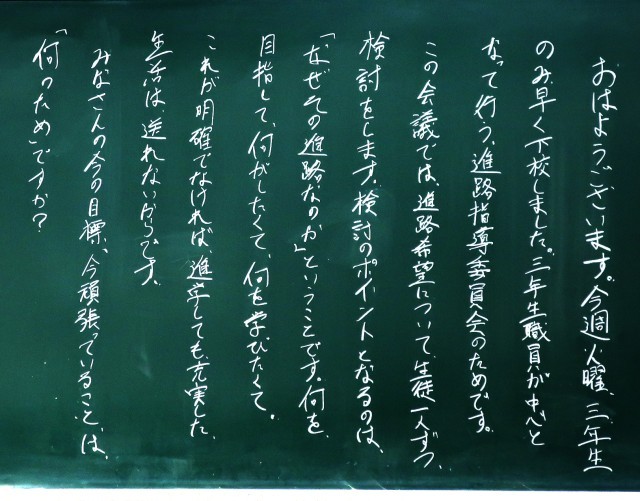 おはようございます。今週火曜、三年生
のみ早く下校しました。三年生職員が中心と
なって行う、進路指導委員会のためです。
この会議では、進路希望について、生徒一人ずつ、
検討をします。検討のポイントとなるのは、
「なぜその進路なのか」ということです。何を
目指して、何がしたくて、何を学びたくて。
これが明確でなければ、進学しても充実した
生活は送れないからです。
みなさんの今の目標、今頑張っていることは、
「何のため」ですか？